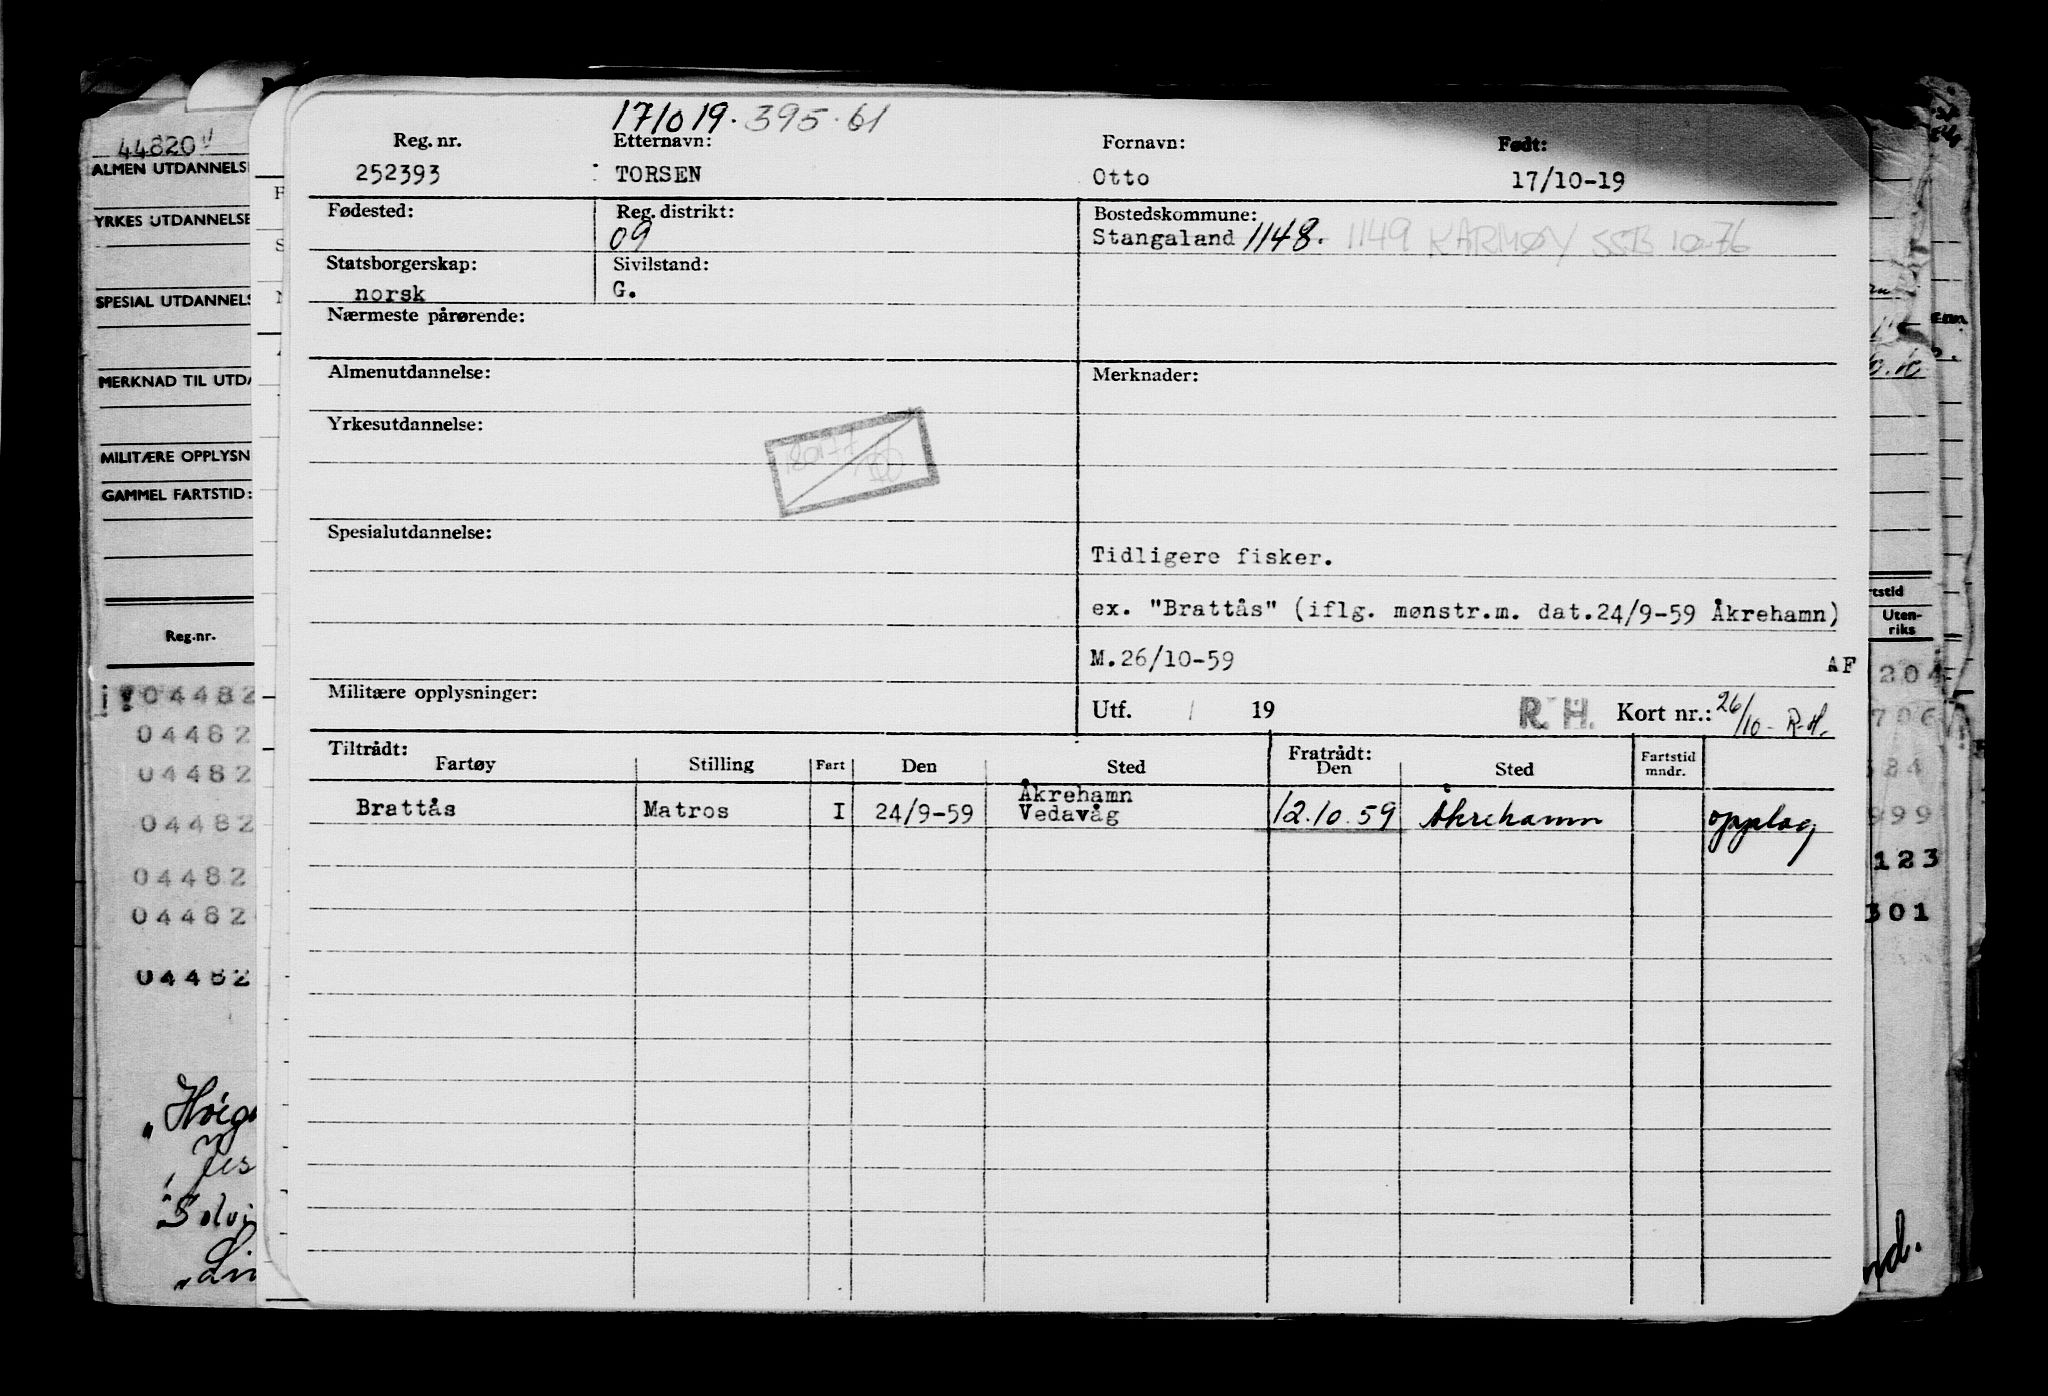 171019. 395.61
Reg. nr. Etternavn: Fornavn: Født:
252393 TORSEN Otto 17/10-19
Fødested: Reg. distrikt: Bostedskommune:
09 Stangaland 1148. 1149 KARMØY SSB 10-76
Statsborgerskap: Sivilstand:
norsk G.
Nærmeste pårørende:
Almenutdannelse: Merknader:
Yrkesutdannelse:
Spesialutdannelse:
Tidligere fisker.
ex. "Brattås" (iflg. mønstr.m. dat.24/9-59 Åkrehamn)
M.26/10-59 AF
Militære opplysninger:
Utf. / 19 R.H. Kort nr.: 26/10- R-H.
Tiltrådt: Fratrådt:
Fartøy Stilling Fart Den Sted Den Sted Fartstid mndr.
Åkrehamn
Brattås Matros I 24/9-59 Vedavåg 12.10.59 Åkrehamn opplag
44820
ALMEN UTDANNELSE
YRKES UTDANNELSE
SPESIAL UTDANNELS
MERKNAD TIL UTDA
MILITÆRE OPPLYSN
GAMMEL FARTSTID:
Reg.nr.
04482
04482
04482
04482
04482
04482
04482
Uten-
riks
204
706
999
123
301